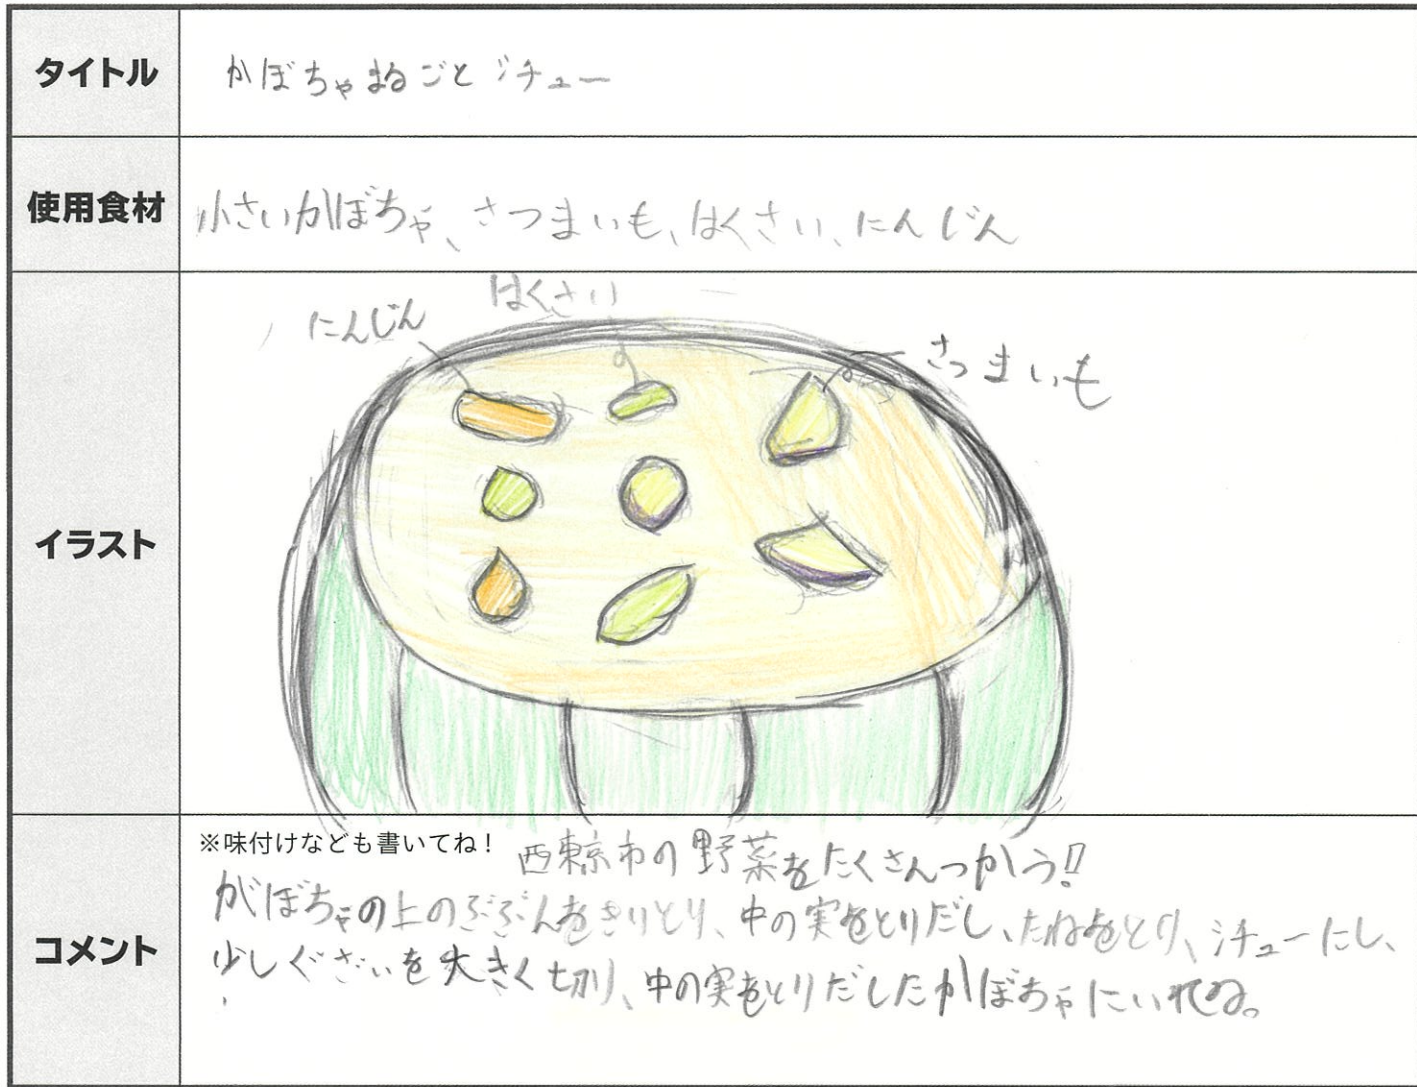 タイトル
かぼちゃまるごとシチュー
使用食材
小さいかぼちゃ、さつまいも、はくさい、にんじん
イラスト
はくさい
にんじん
さつまいも
コメント
※味付けなども書いてね!
西東京市の野菜をたくさんつかう!!
かぼちゃの上のぶぶんをきりとり、中の実をとりだし、たねをとり、シチューにし、
少しぐざいを大きく切り、中の実をとりだしたかぼちゃにいれる。